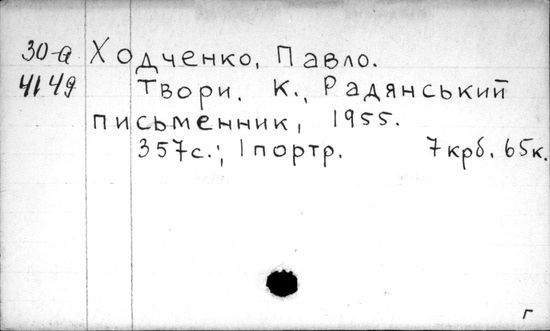 30-а Ходченко, Павло.
4149 Твори. К., Радянський
письменник, 1955.
357с.; 1портр. 7крб. 65к.
г